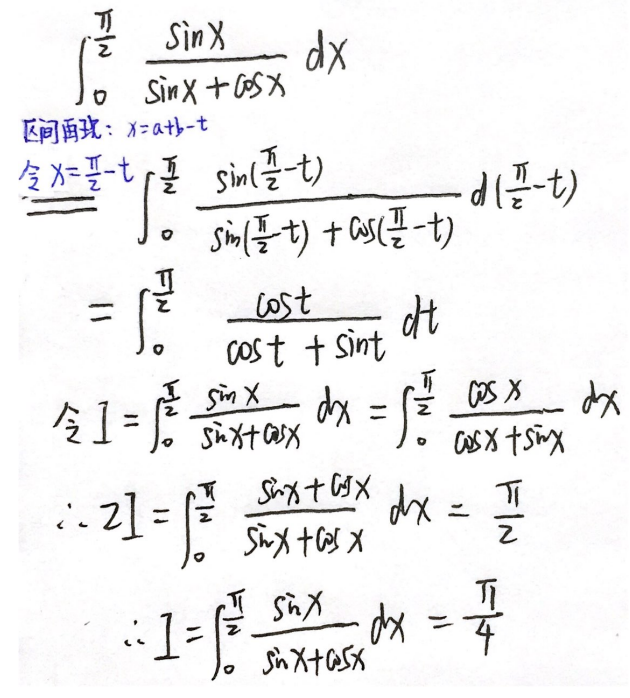 ∫₀^{π/2} sinx/(sinx+cosx) dx
区间再现：x=a+b-t
令x=π/2-t ∫₀^{π/2} sin(π/2-t)/(sin(π/2-t)+cos(π/2-t)) d(π/2-t)
=∫₀^{π/2} cost/(cost+sint) dt
令I=∫₀^{π/2} sinx/(sinx+cosx) dx=∫₀^{π/2} cosx/(cosx+sinx) dx
∴2I=∫₀^{π/2} (sinx+cosx)/(sinx+cosx) dx=π/2
∴I=∫₀^{π/2} sinx/(sinx+cosx) dx=π/4